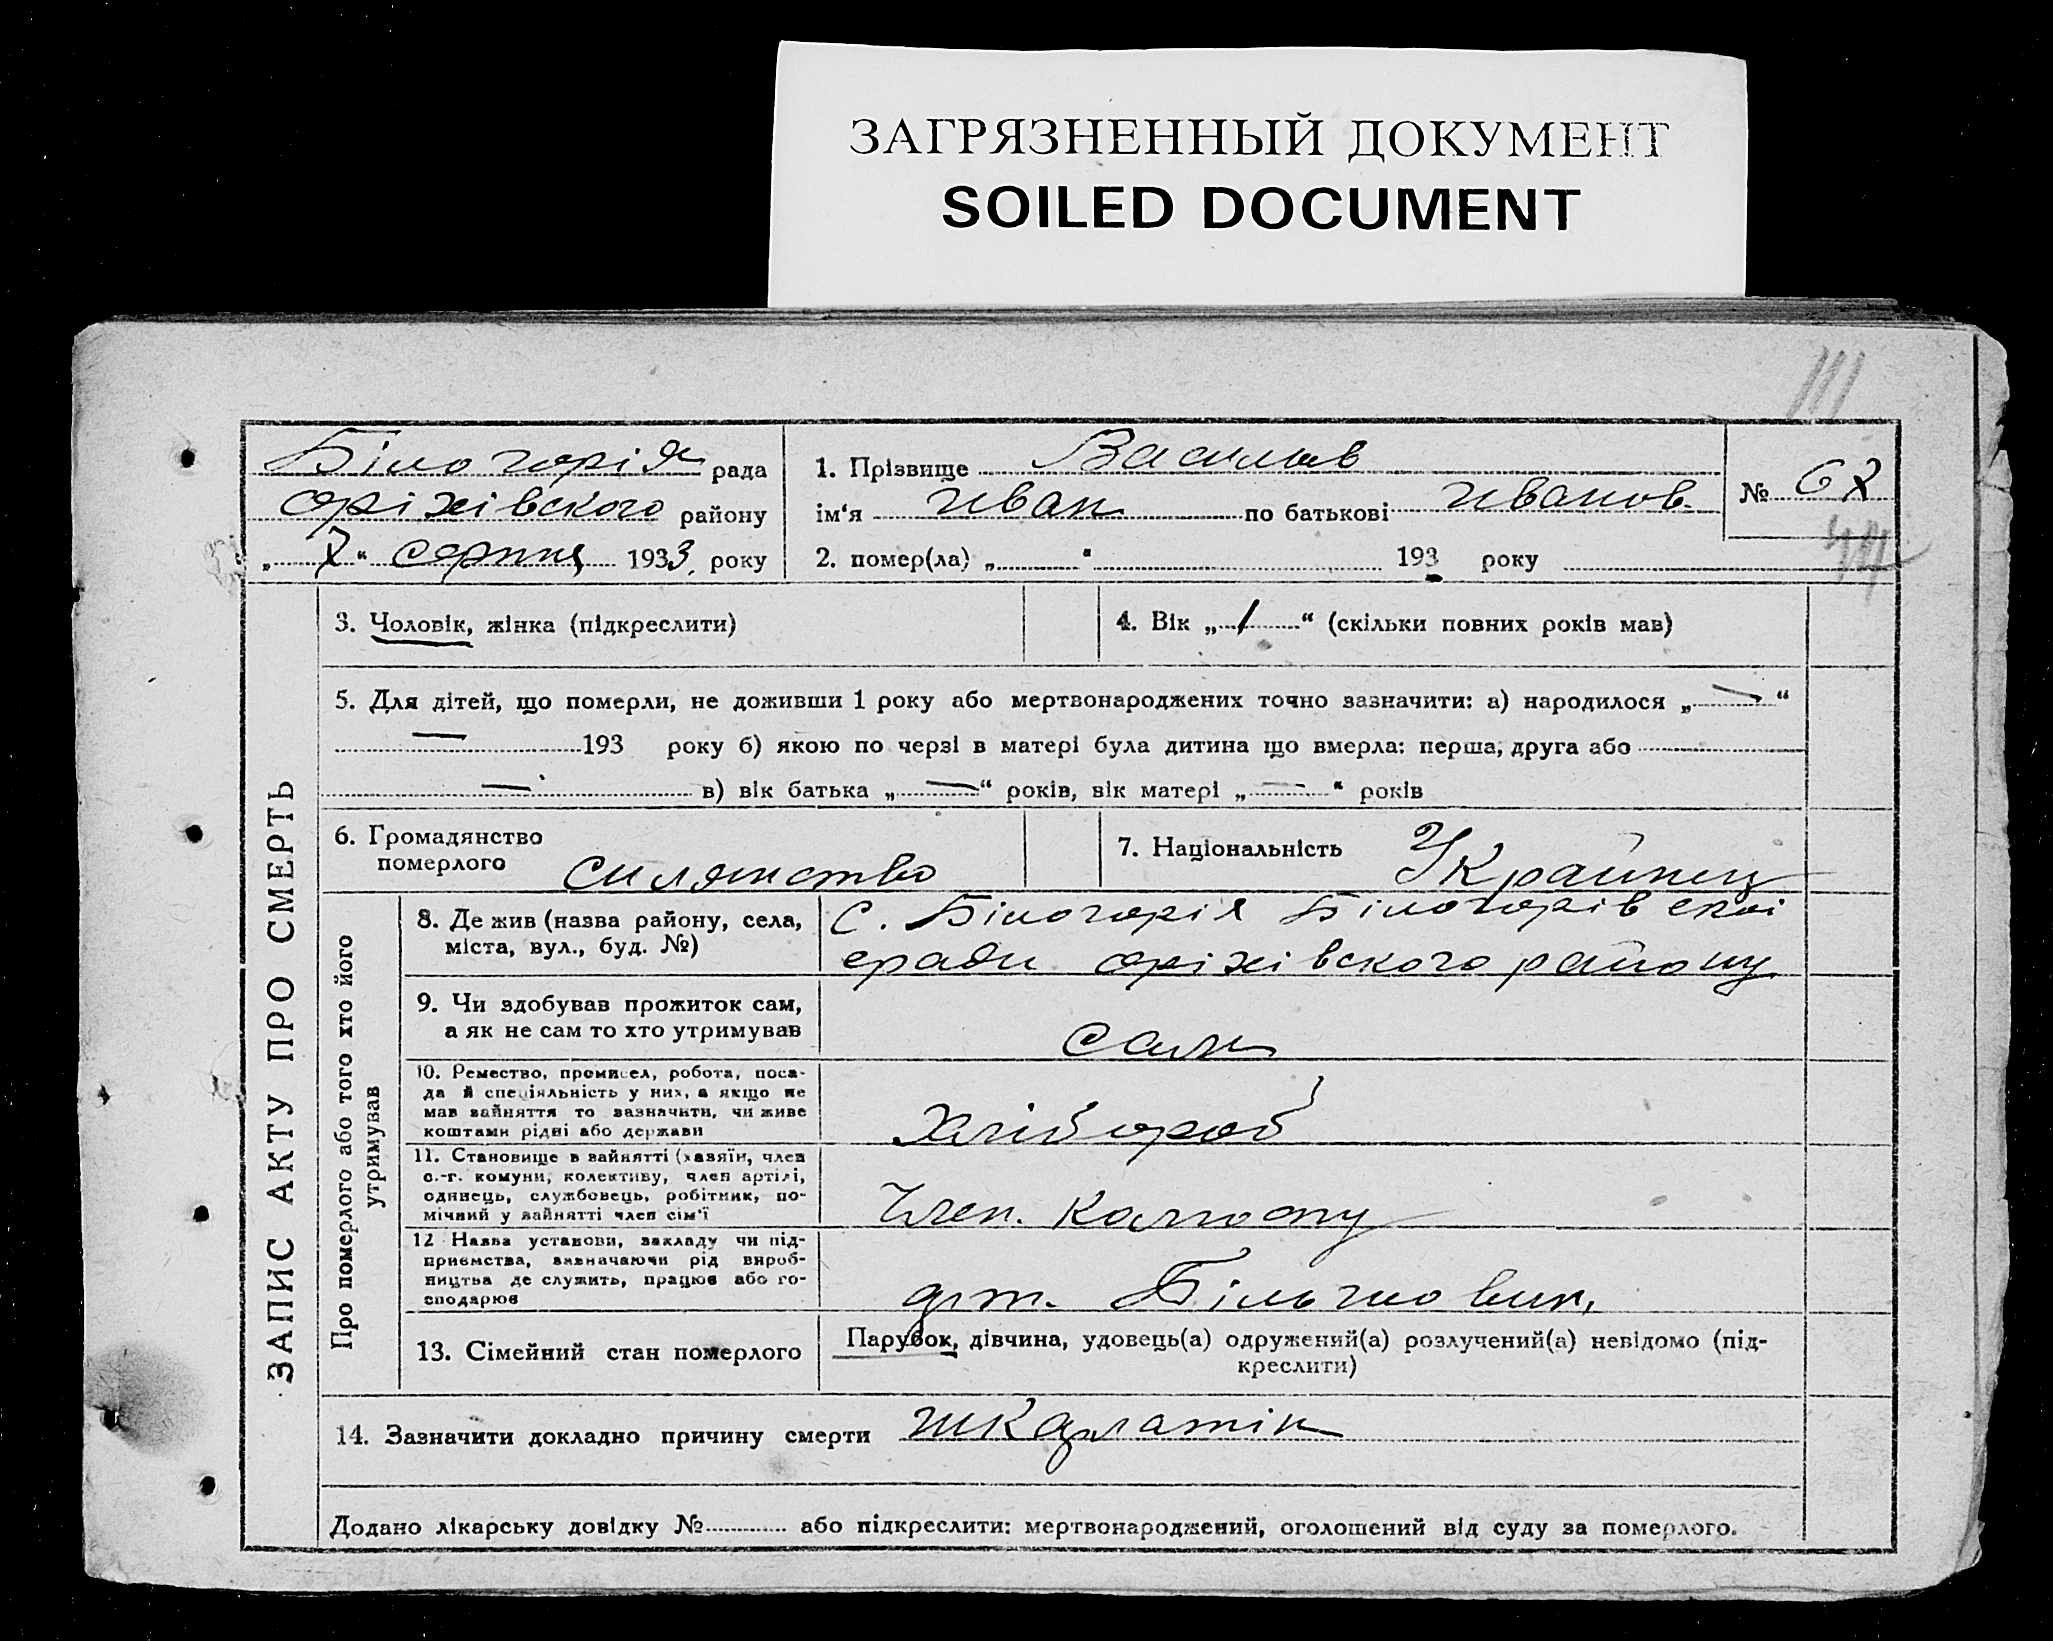 ЗАГРЯЗНЕННЫЙ ДОКУМЕНТ
SOILED DOCUMENT
111
Білогорія рада
оріхівского району
„ 7 “ серпня 1933 року
1. Прізвище Васильв
ім‘я Иван по батькові Иванов.
2. помер(ла) „ “ 193 року
№ 67
ЗАПИС АКТУ ПРО СМЕРТЬ
3. Чоловік, жінка (підкреслити)
4. Вік „ 1 “ (скільки повних років мав)
5. Для дітей, що померли, не доживши 1 року або мертвонароджених точно зазначити: а) народилося „ — “
— 193 року б) якою по черзі в матері була дитина що вмерла: перша, друга або
— в) вік батька „ — “ років, вік матері „ — “ років
6. Громадянство
померлого
7. Національність Украйнец
Про померлого або того хто його
утримував
8. Де жив (назва району, села,
міста, вул., буд. №)
с. Білогорія Білогорівскоі
сради оріхівского району
9. Чи здобував прожиток сам,
а як не сам то хто утримував
сам
10. Ремество, промисел, робота, поса-
да й спеціяльність у них, а якщо не
мав зайняття то зазначити, чи живе
коштами рідні або держави
Хлібороб
11. Становище в зайнятті (хазяїн, член
с.-г. комуни, колективу, член артілі,
одинець, службовець, робітник, по-
мічний у зайнятті член сім‘ї
Член. Колгоспу
12 Назва установи, закладу чи під-
приємства, визначаючи рід вироб-
ництва де служить, працює або го-
сподарює
13. Сімейний стан померлого
Парубок, дівчина, удовець(а) одружений(а) розлучений(а) невідомо (під-
креслити)
14. Зазначити докладно причину смерти шкарлатін
Додано лікарську довідку № або підкреслити: мертвонароджений, оголошений від суду за померлого.